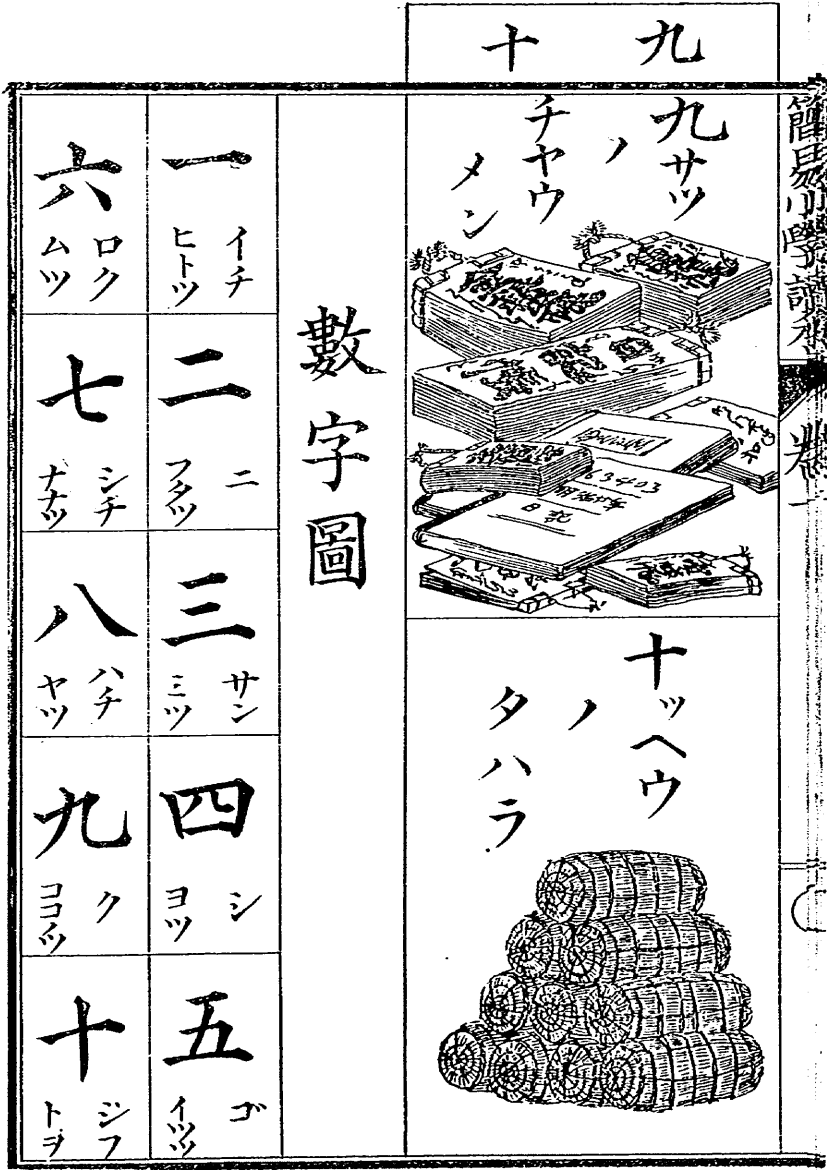 簡易小學讀本
卷一
九
十
九サツ
ノ
チヤウ
メン
日記
十ッヘウ
ノ
タハラ
數字圖
一
イチ
ヒトツ
二
ニ
フタツ
三
サン
ミツ
四
シ
ヨツ
五
ゴ
イツツ
六
ロク
ムツ
七
シチ
ナナツ
八
ハチ
ヤツ
九
ク
ココノツ
十
ジフ
トヲ